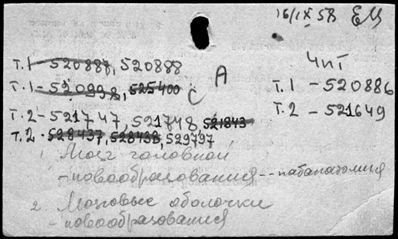 16/IX 58 ЕМ
Чит
т.1 - 520887, 520888
т.1 - 520998, 525400
С А
т.1 - 520886
т.2 - 521747, 521748, 521843
т.2 - 521649
т.2 - 528437, 528438, 529797
1. Мозг головной
- новообразования -- патанатомия
2. Мозговые оболочки
- новообразования